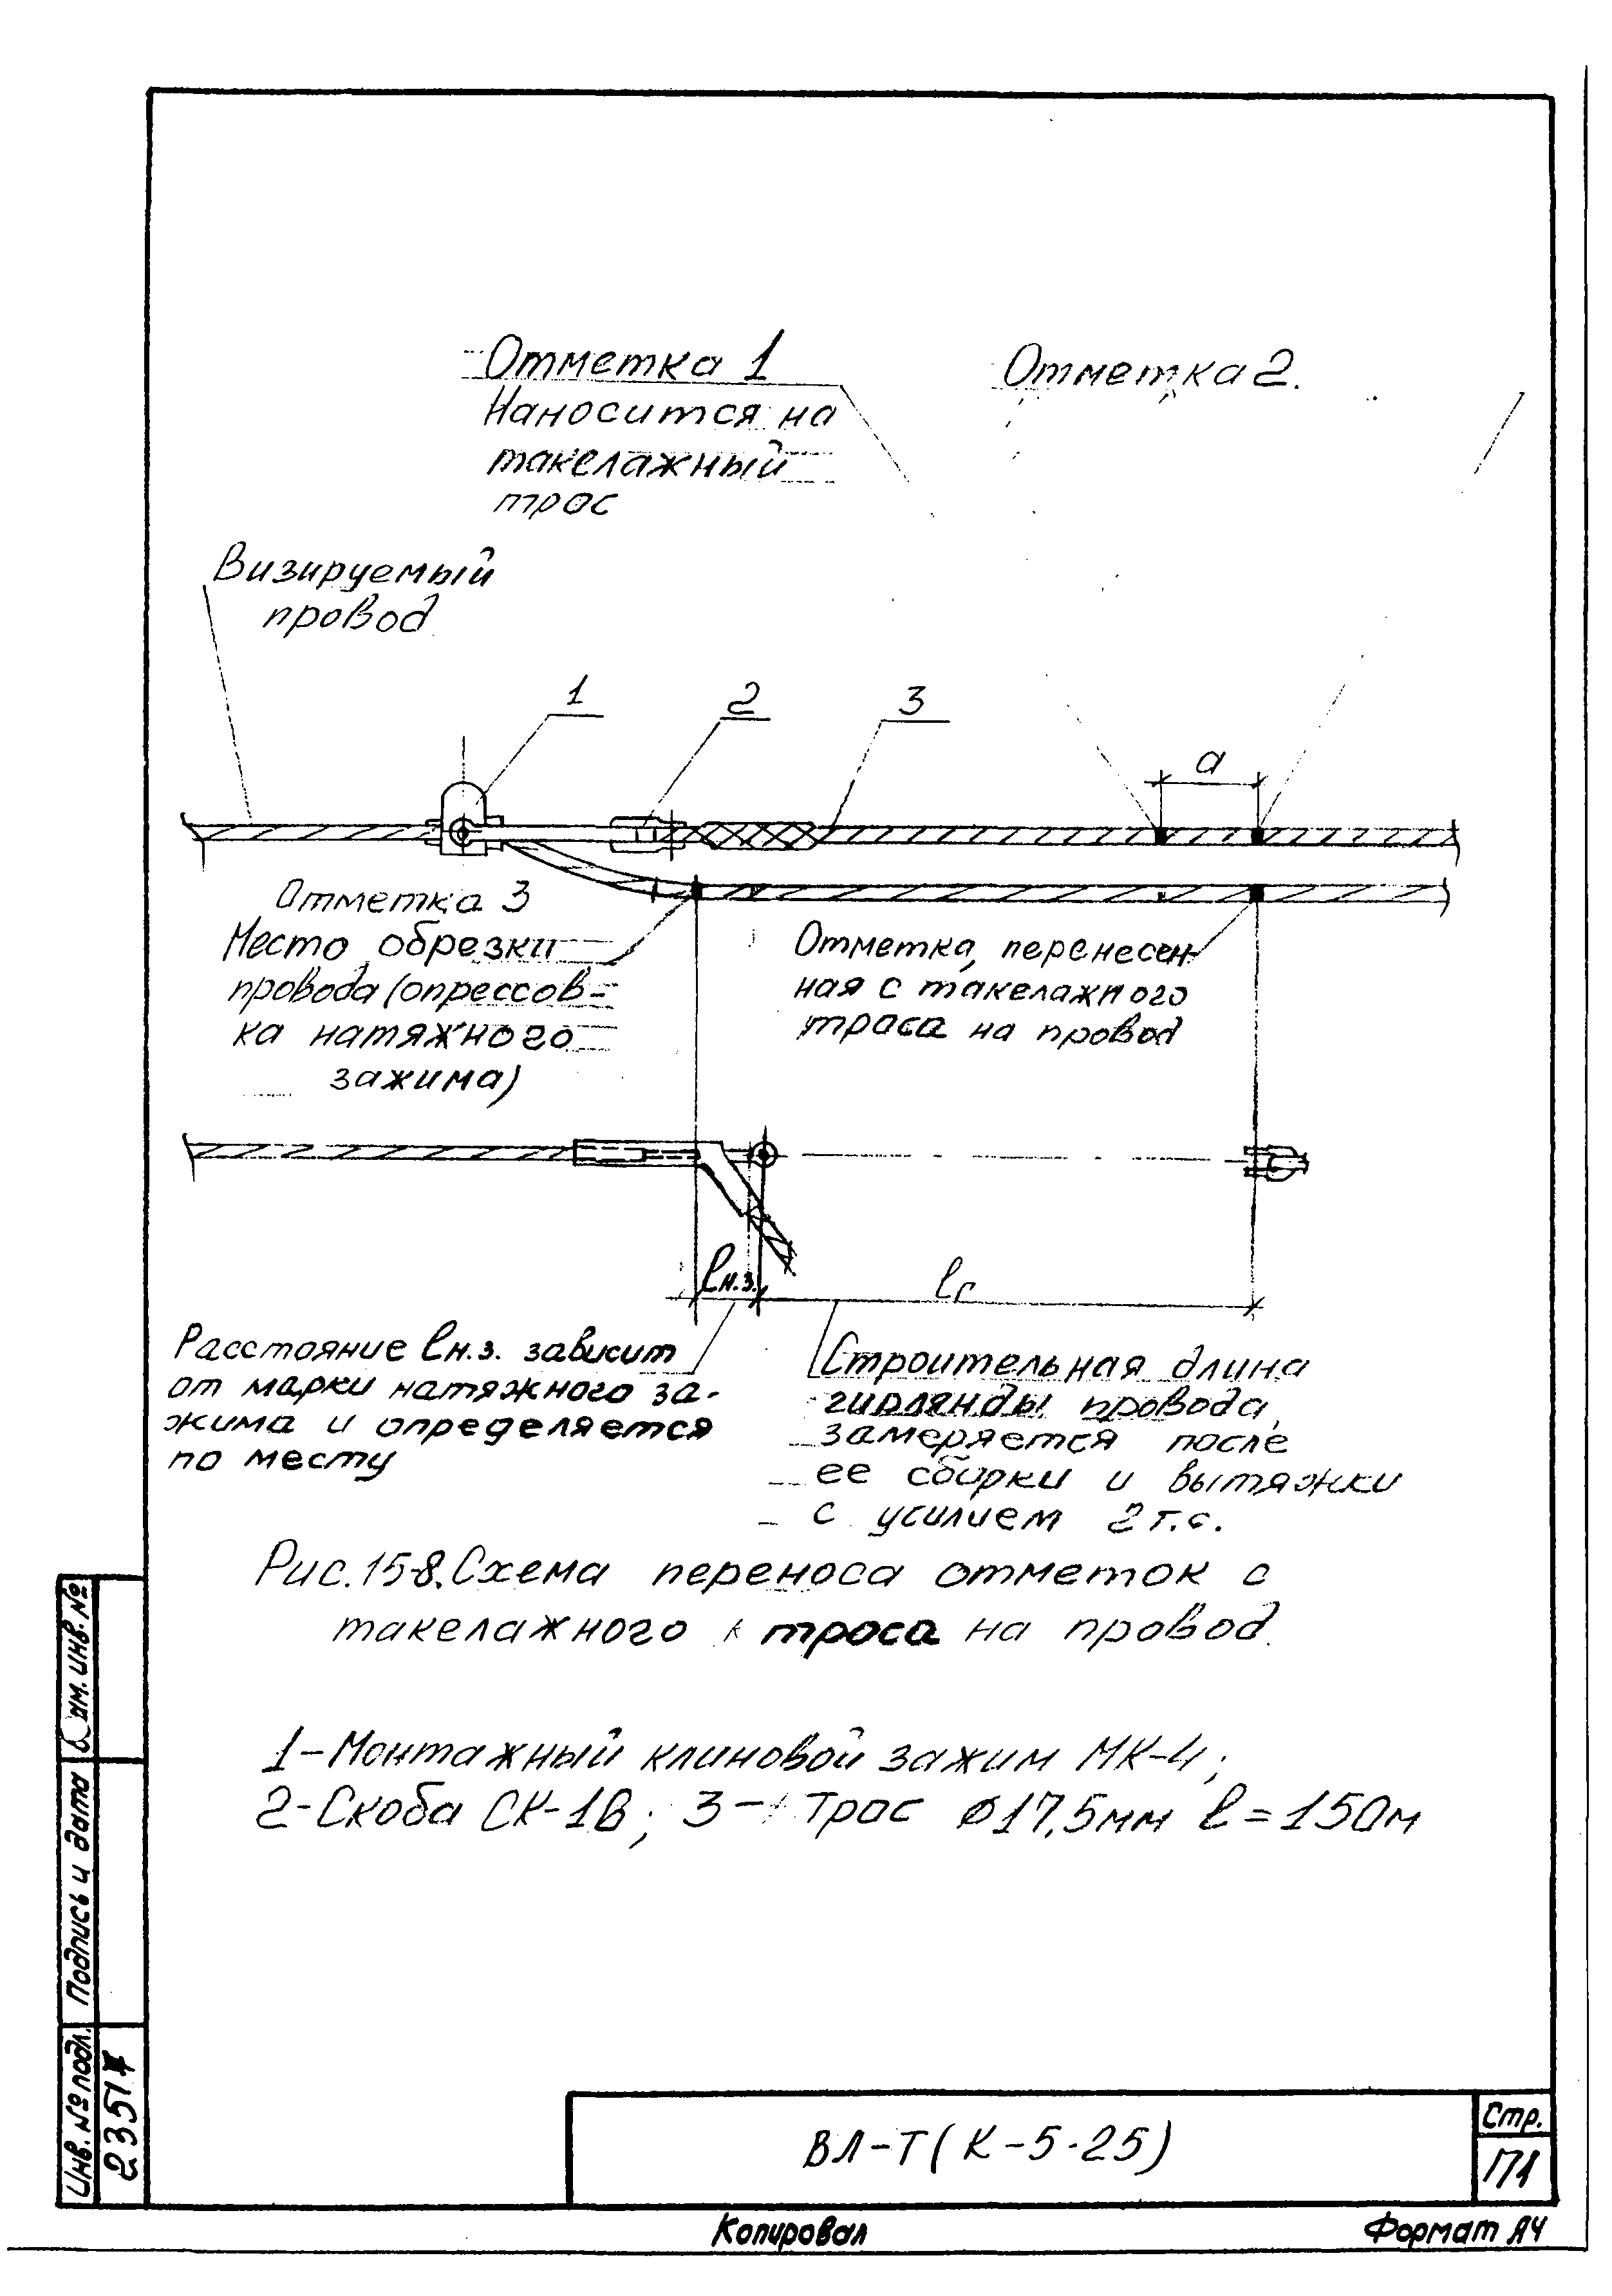 Отметка 1
Наносится на
такелажный
трос
Отметка 2.
Визируемый
провод
1
2
3
а
Отметка 3
Место обрезки
провода (опрессов-
ка натяжного
зажима)
Отметка, перенесен-
ная с такелажного
траса на провод
ℓн.з.
ℓг
Расстояние ℓн.з. зависит
от марки натяжного за-
жима и определяется
по месту
Строительная длина
гирлянды провода,
замеряется после
ее сборки и вытяжки
с усилием 2т.с.
Рис. 15-8. Схема переноса отметок с
такелажного троса на провод.
1-Монтажный клиновой зажим МК-4;
2-Скоба СК-1В; 3- Трос ø17,5мм ℓ=150м
Инв. № подл.
Подпись и дата
инв. №
ВЛ-Т(К-5-25)
Стр.
171
Копировал
Формат А4